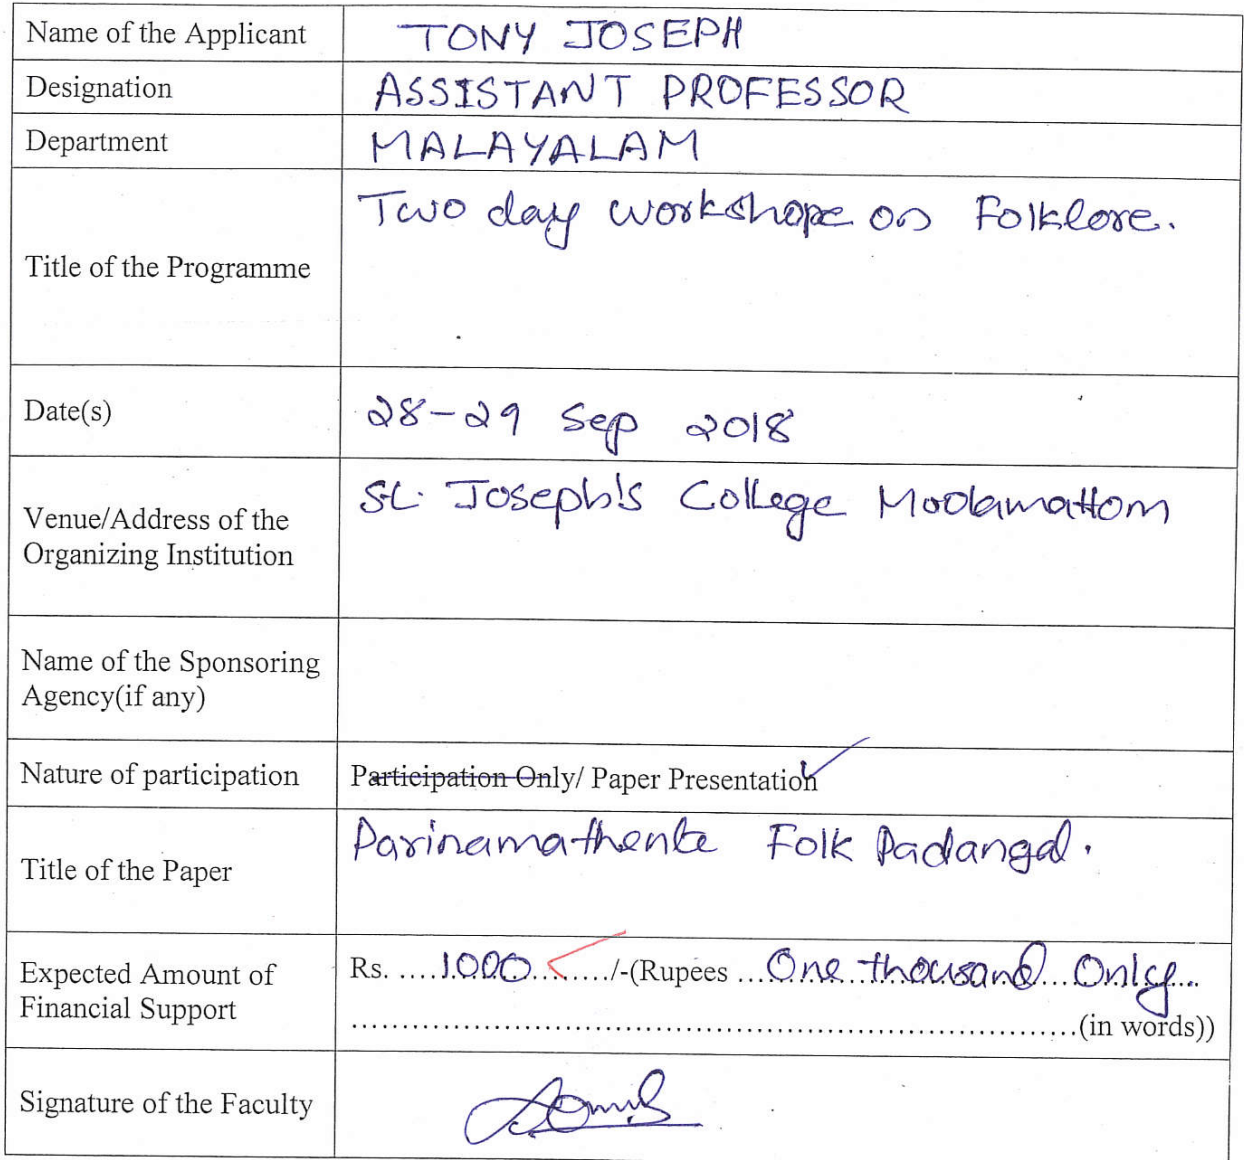 Name of the Applicant TONY JOSEPH
Designation ASSISTANT PROFESSOR
Department MALAYALAM
Title of the Programme Two day workshope on Folklore.
Date(s) 28-29 Sep 2018
Venue/Address of the St. Joseph's College Moolamattom
Organizing Institution
Name of the Sponsoring
Agency(if any)
Nature of participation Participation Only/ Paper Presentation
Title of the Paper Parinamathente Folk Padangal.
Expected Amount of Rs. ....1000......../-(Rupees ...One thousand Only...
Financial Support ....................................................................(in words))
Signature of the Faculty